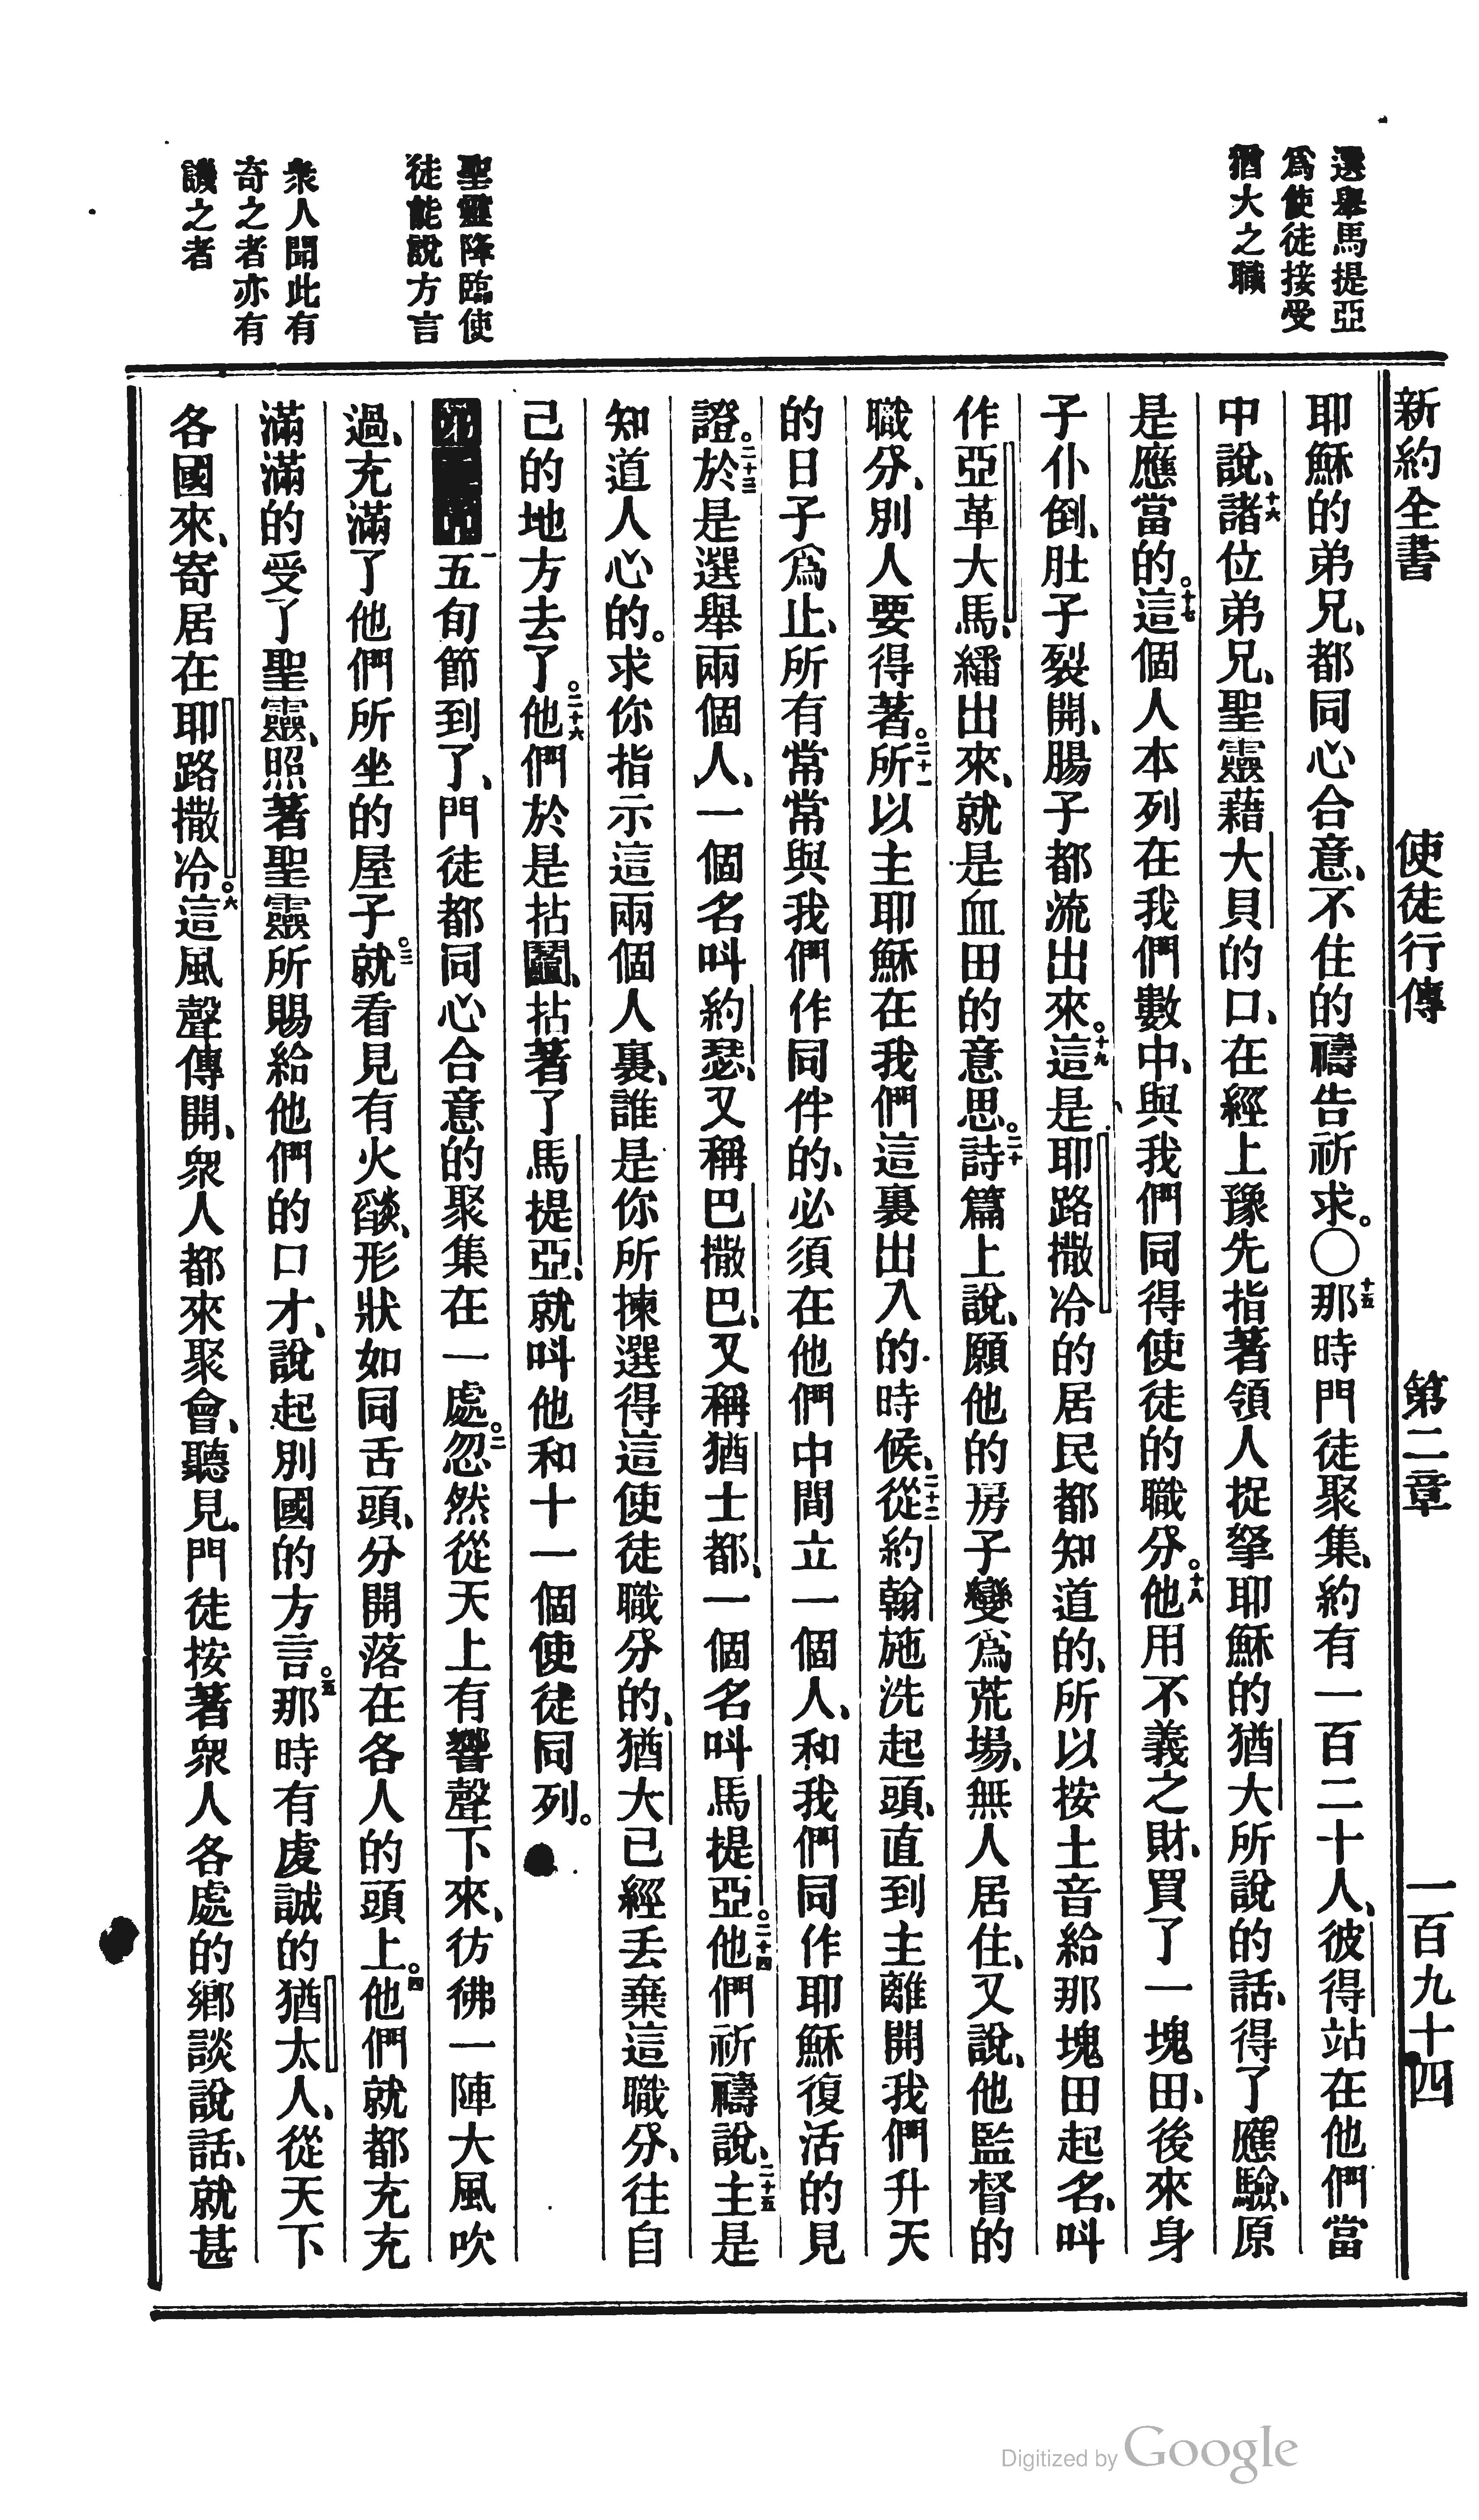 新約全書 使徒行傳 第二章 一百九十四
選舉馬提亞
爲使徒接受
猶大之職
聖靈降臨使
徒能說方言
衆人聞此有
奇之者亦有
譏之者
耶穌的弟兄、都同心合意、不住的禱告祈求。〇十五那時門徒聚集、約有一百二十人、彼得站在他們當
中說、十六諸位弟兄、聖靈藉大𨳝的口、在經上豫先指著領人捉拏耶穌的猶大所說的話、得了應驗、原
是應當的。十七這個人本列在我們數中、與我們同得使徒的職分。十八他用不義之財、買了一塊田、後來身
子仆倒、肚子裂開、腸子都流出來。十九這是耶路撒冷的居民都知道的、所以按土音給那塊田起名、叫
作亞革大馬、繙出來、就是血田的意思。二十詩篇上說、願他的房子變爲荒場、無人居住、又說、他監督的
職分、別人要得著。二十一所以主耶穌在我們這裏出入的時候、二十二從約翰施洗起頭、直到主離開我們升天
的日子爲止、所有常常與我們作同伴的、必須在他們中間立一個人、和我們同作耶穌復活的見
證。二十三於是選舉兩個人、一個名叫約瑟、又稱巴撒巴、又稱猶士都、一個名叫馬提亞。二十四他們祈禱說、二十五主是
知道人心的。求你指示這兩個人裏、誰是你所揀選得這使徒職分的、猶大已經丟棄這職分、往自
己的地方去了。二十六他們於是拈鬮、拈著了馬提亞、就叫他和十一個使徒同列。
一五旬節到了、門徒都同心合意的聚集在一處。二忽然從天上有響聲下來、彷彿一陣大風吹
過、充滿了他們所坐的屋子。三就看見有火燄、形狀如同舌頭、分開落在各人的頭上。四他們就都充充
滿滿的受了聖靈、照著聖靈所賜給他們的口才、說起別國的方言。五那時有虔誠的猶太人、從天下
各國來、寄居在耶路撒冷。六這風聲傳開、衆人都來聚會、聽見門徒按著衆人各處的鄉談說話、就甚
Digitized by Google